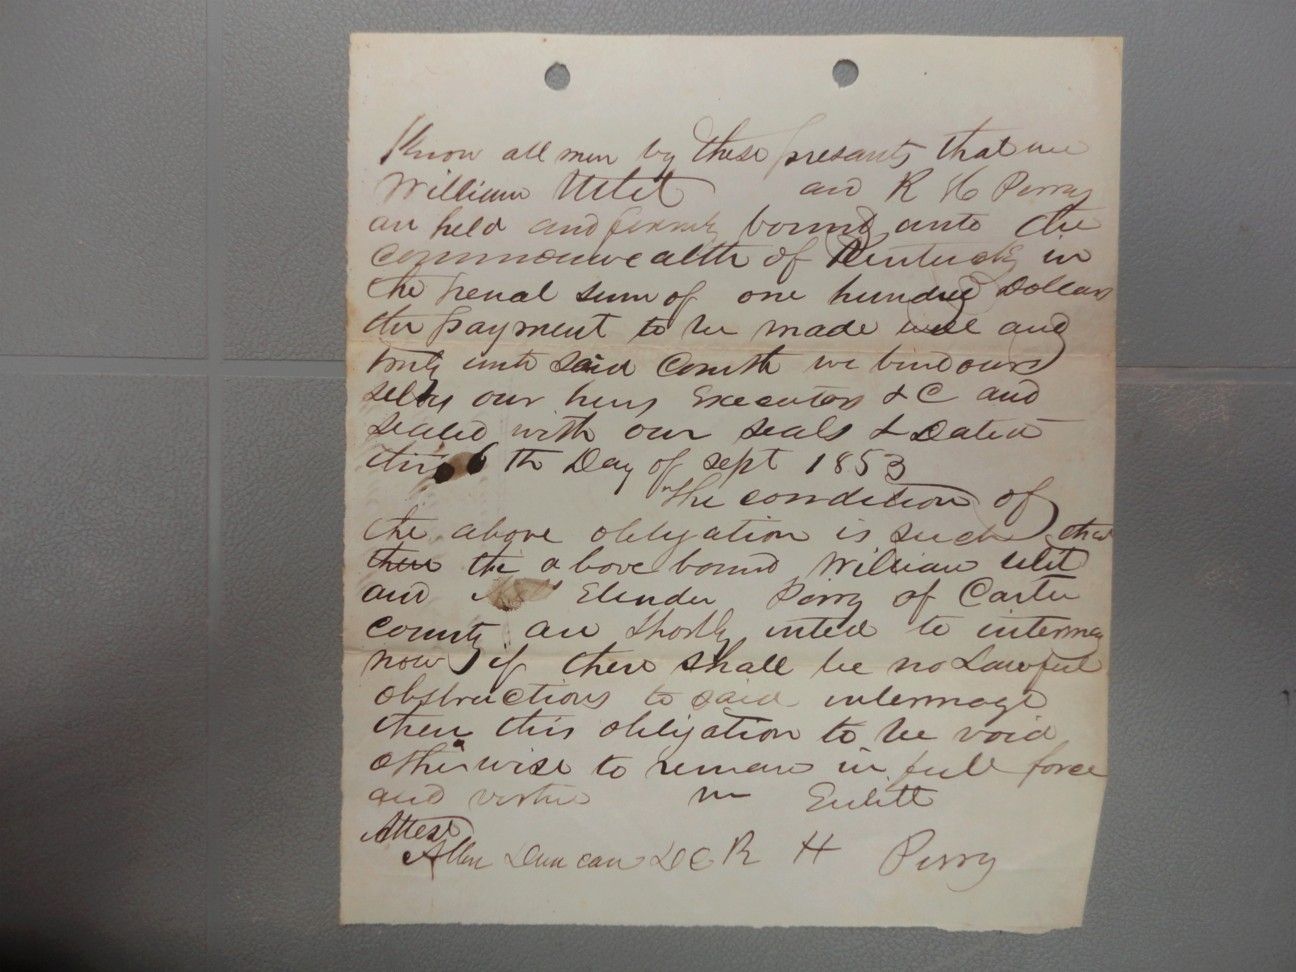 Know all men by these presants that we
William Ulit and R H Perry
are held and firmly bound unto the
commonwealth of Kentucky in
the penal sum of one hundred Dollars
the payment to be made well and
truly unto said Comth we bind our
selvs our heirs Executors & C and
sealed with our seals & Dated
this 6 th Day of sept 1853
The condition of
the above obligation is such that
the above bound William Ulit
and Elender Perry of Carter
county are shortly inted to intermay
now if there shall be no Lawful
obstructions to said intermage
then this obligation to be void
otherwise to remain in full force
and virtue Wm Eulitt
Attest
Allen Duncan DC R H Perry